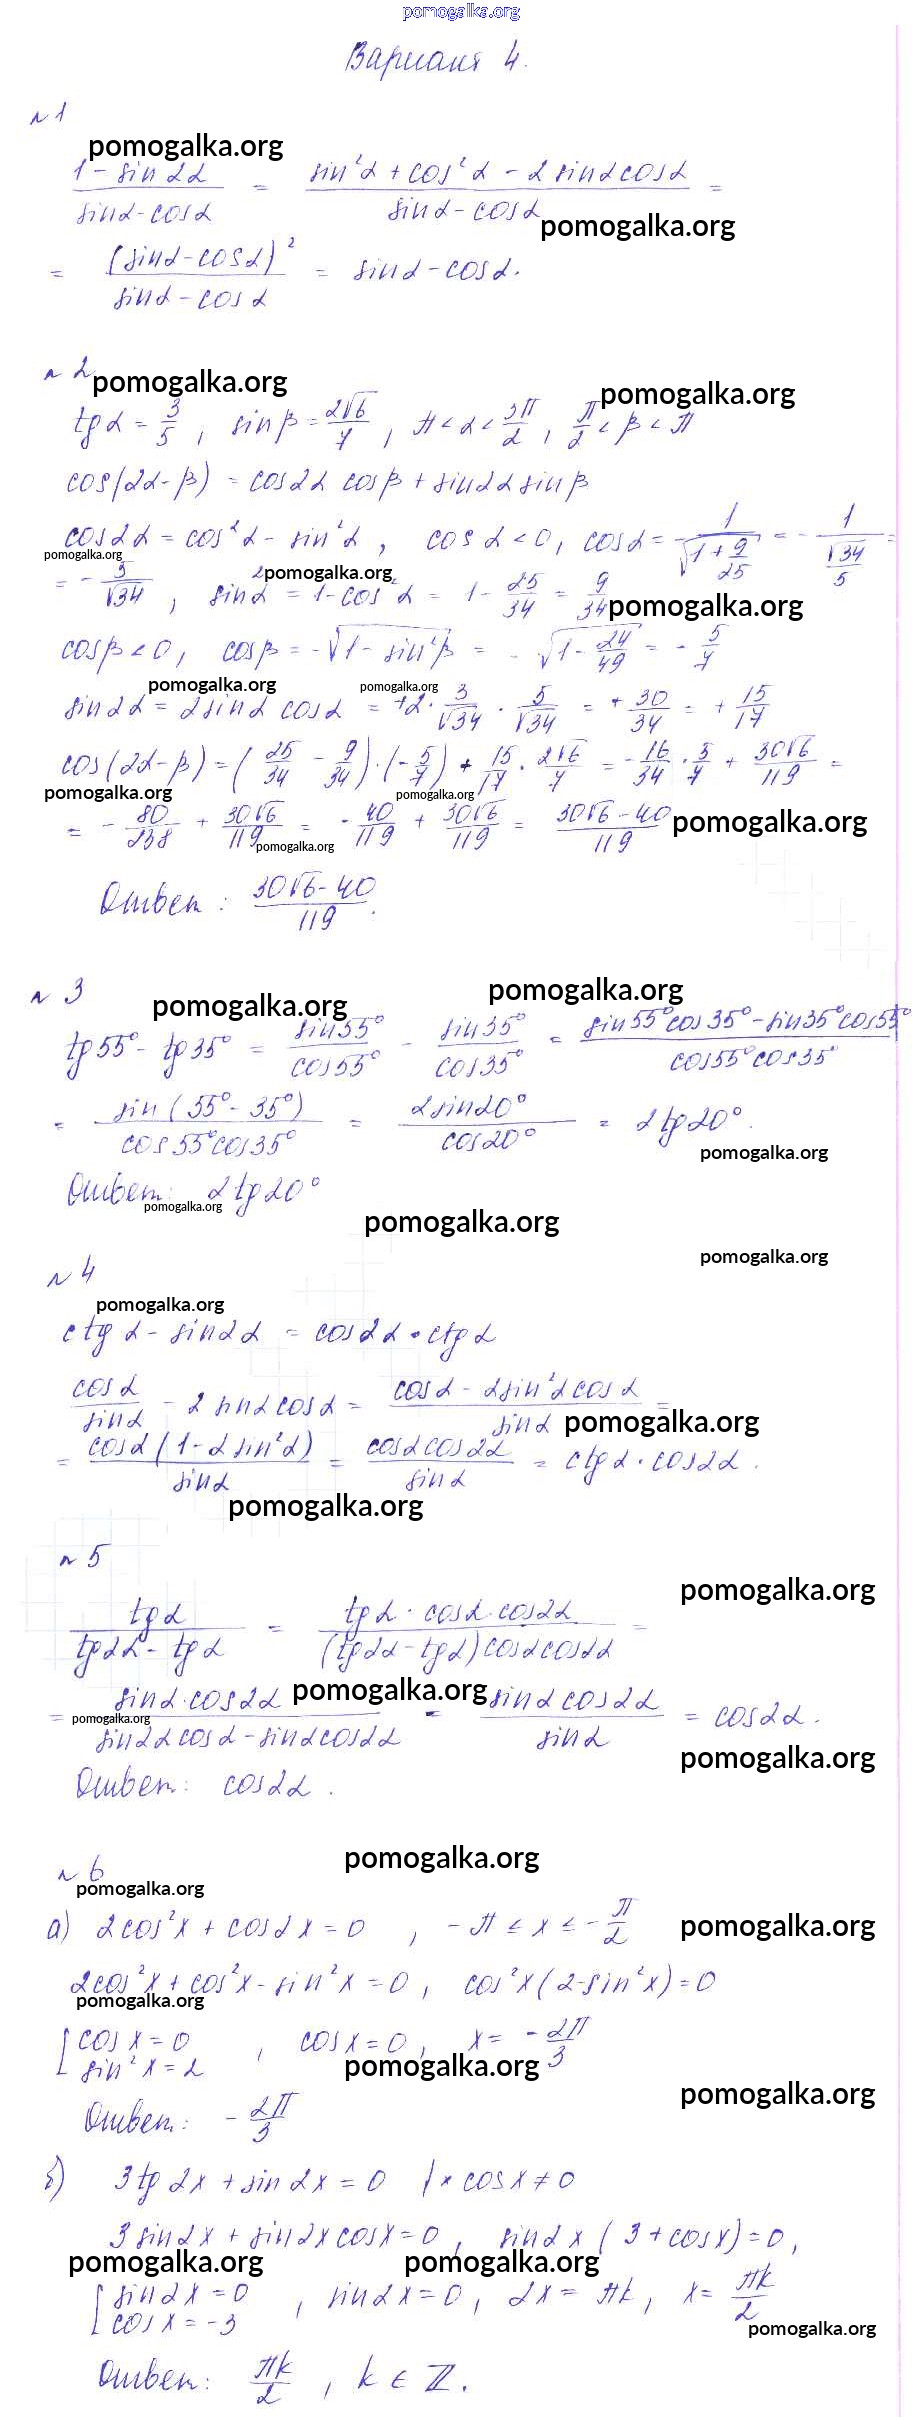 pomogalka.org
Вариант 4.
№1
pomogalka.org
(1 - sin 2α)/(sin α - cos α) = (sin²α + cos²α - 2 sin α cos α)/(sin α - cos α) =
pomogalka.org
= (sin α - cos α)²/(sin α - cos α) = sin α - cos α.
№ 2
pomogalka.org pomogalka.org
tg α = 3/5, sin β = 2√6/7, π < α < 3π/2, π/2 < β < π
cos(2α - β) = cos 2α cos β + sin 2α sin β
cos 2α = cos²α - sin²α, cos α < 0, cos α = -1/√(1 + 9/25) = -1/(√34/5) =
pomogalka.org pomogalka.org
= -5/√34, sin²α = 1 - cos²α = 1 - 25/34 = 9/34
pomogalka.org
cos β < 0, cos β = -√(1 - sin²β) = -√(1 - 24/49) = -5/7
pomogalka.org pomogalka.org
sin 2α = 2 sin α cos α = +2 · 3/√34 · 5/√34 = +30/34 = +15/17
cos(2α - β) = (25/34 - 9/34) · (-5/7) + 15/17 · 2√6/7 = -16/34 · 5/7 + 30√6/119 =
pomogalka.org pomogalka.org
= -80/238 + 30√6/119 = -40/119 + 30√6/119 = (30√6 - 40)/119
pomogalka.org pomogalka.org
Ответ: (30√6 - 40)/119.
№ 3
pomogalka.org pomogalka.org
tg 55° - tg 35° = sin 55°/cos 55° - sin 35°/cos 35° = (sin 55° cos 35° - sin 35° cos 55°)/(cos 55° cos 35°)
= sin(55° - 35°)/(cos 55° cos 35°) = 2 sin 20°/cos 20° = 2 tg 20°.
pomogalka.org
Ответ: 2 tg 20°
pomogalka.org
pomogalka.org
pomogalka.org
№ 4
pomogalka.org
ctg α - sin 2α = cos 2α · ctg α
cos α/sin α - 2 sin α cos α = (cos α - 2 sin²α cos α)/sin α =
pomogalka.org
= cos α(1 - 2 sin²α)/sin α = cos α cos 2α/sin α = ctg α · cos 2α.
pomogalka.org
№ 5
pomogalka.org
tg α/(tg 2α - tg α) = (tg α · cos α · cos 2α)/((tg 2α - tg α) cos α cos 2α) =
pomogalka.org
= (sin α · cos 2α)/(sin 2α cos α - sin α cos 2α) = (sin α cos 2α)/sin α = cos 2α.
pomogalka.org
pomogalka.org
Ответ: cos 2α.
pomogalka.org
№ 6
pomogalka.org
а) 2cos²x + cos 2x = 0, -π ≤ x ≤ -π/2
pomogalka.org
2cos²x + cos²x - sin²x = 0, cos²x(2 - sin²x) = 0
pomogalka.org
[ cos x = 0
sin²x = 2, cos x = 0, x = -2π/3
pomogalka.org
pomogalka.org
Ответ: -2π/3
б) 3tg 2x + sin 2x = 0 | × cos x ≠ 0
3 sin 2x + sin 2x cos x = 0, sin 2x (3 + cos x) = 0,
pomogalka.org pomogalka.org
[ sin 2x = 0
cos x = -3, sin 2x = 0, 2x = πk, x = πk/2
pomogalka.org
Ответ: πk/2, k ∈ Z.